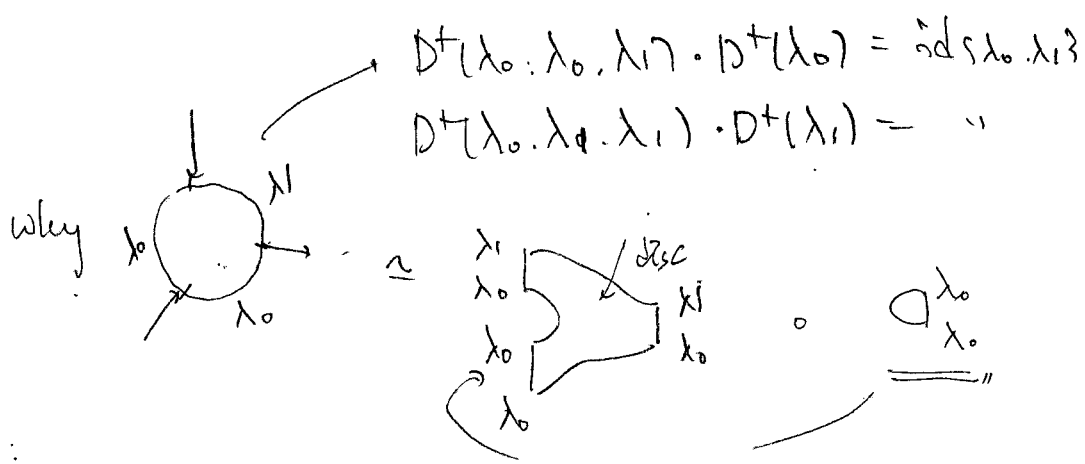 D⁺(λ₀, λ₀, λ₁) · D⁺(λ₀) = id{λ₀, λ₁}
D⁺(λ₀, λ₁, λ₁) · D⁺(λ₁) = "
why λ₀ λ₁ λ₀ ≃ λ₁ λ₀ λ₀ λ₀ disc λ₁ λ₀ ∘ λ₀ λ₀